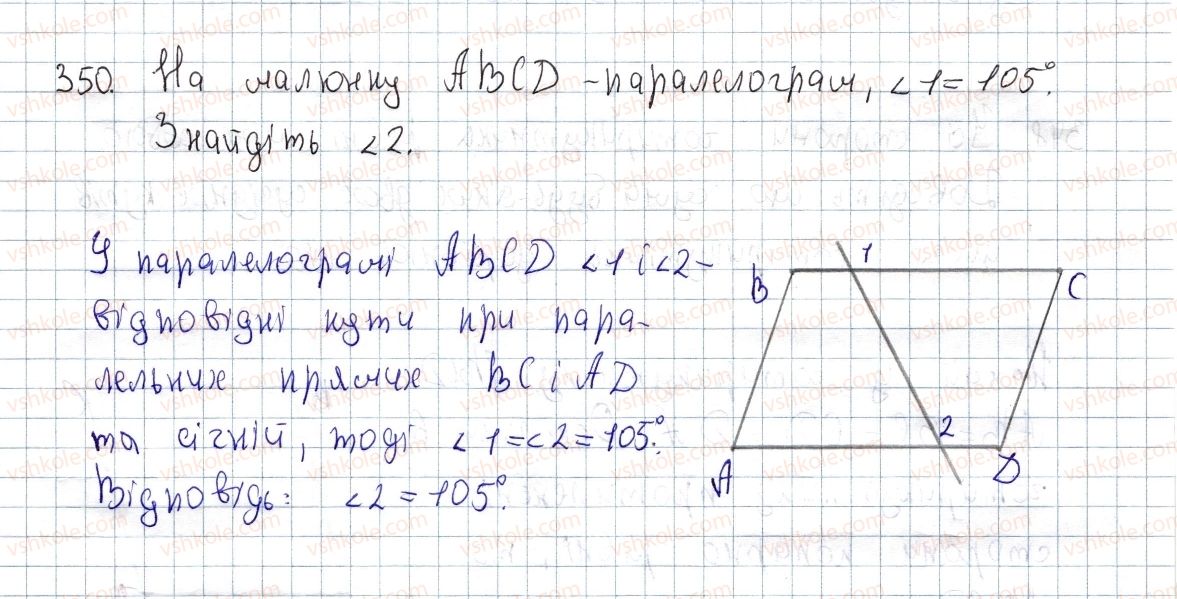 350. На малюнку ABCD - паралелограм, <1 = 105°.
Знайдіть <2.
У паралелограмі ABCD <1 і <2 -
відповідні кути при пара-
лельних прямих BC і AD
та січній, тоді <1 = <2 = 105°.
Відповідь: <2 = 105°.
1
B
C
2
A
D